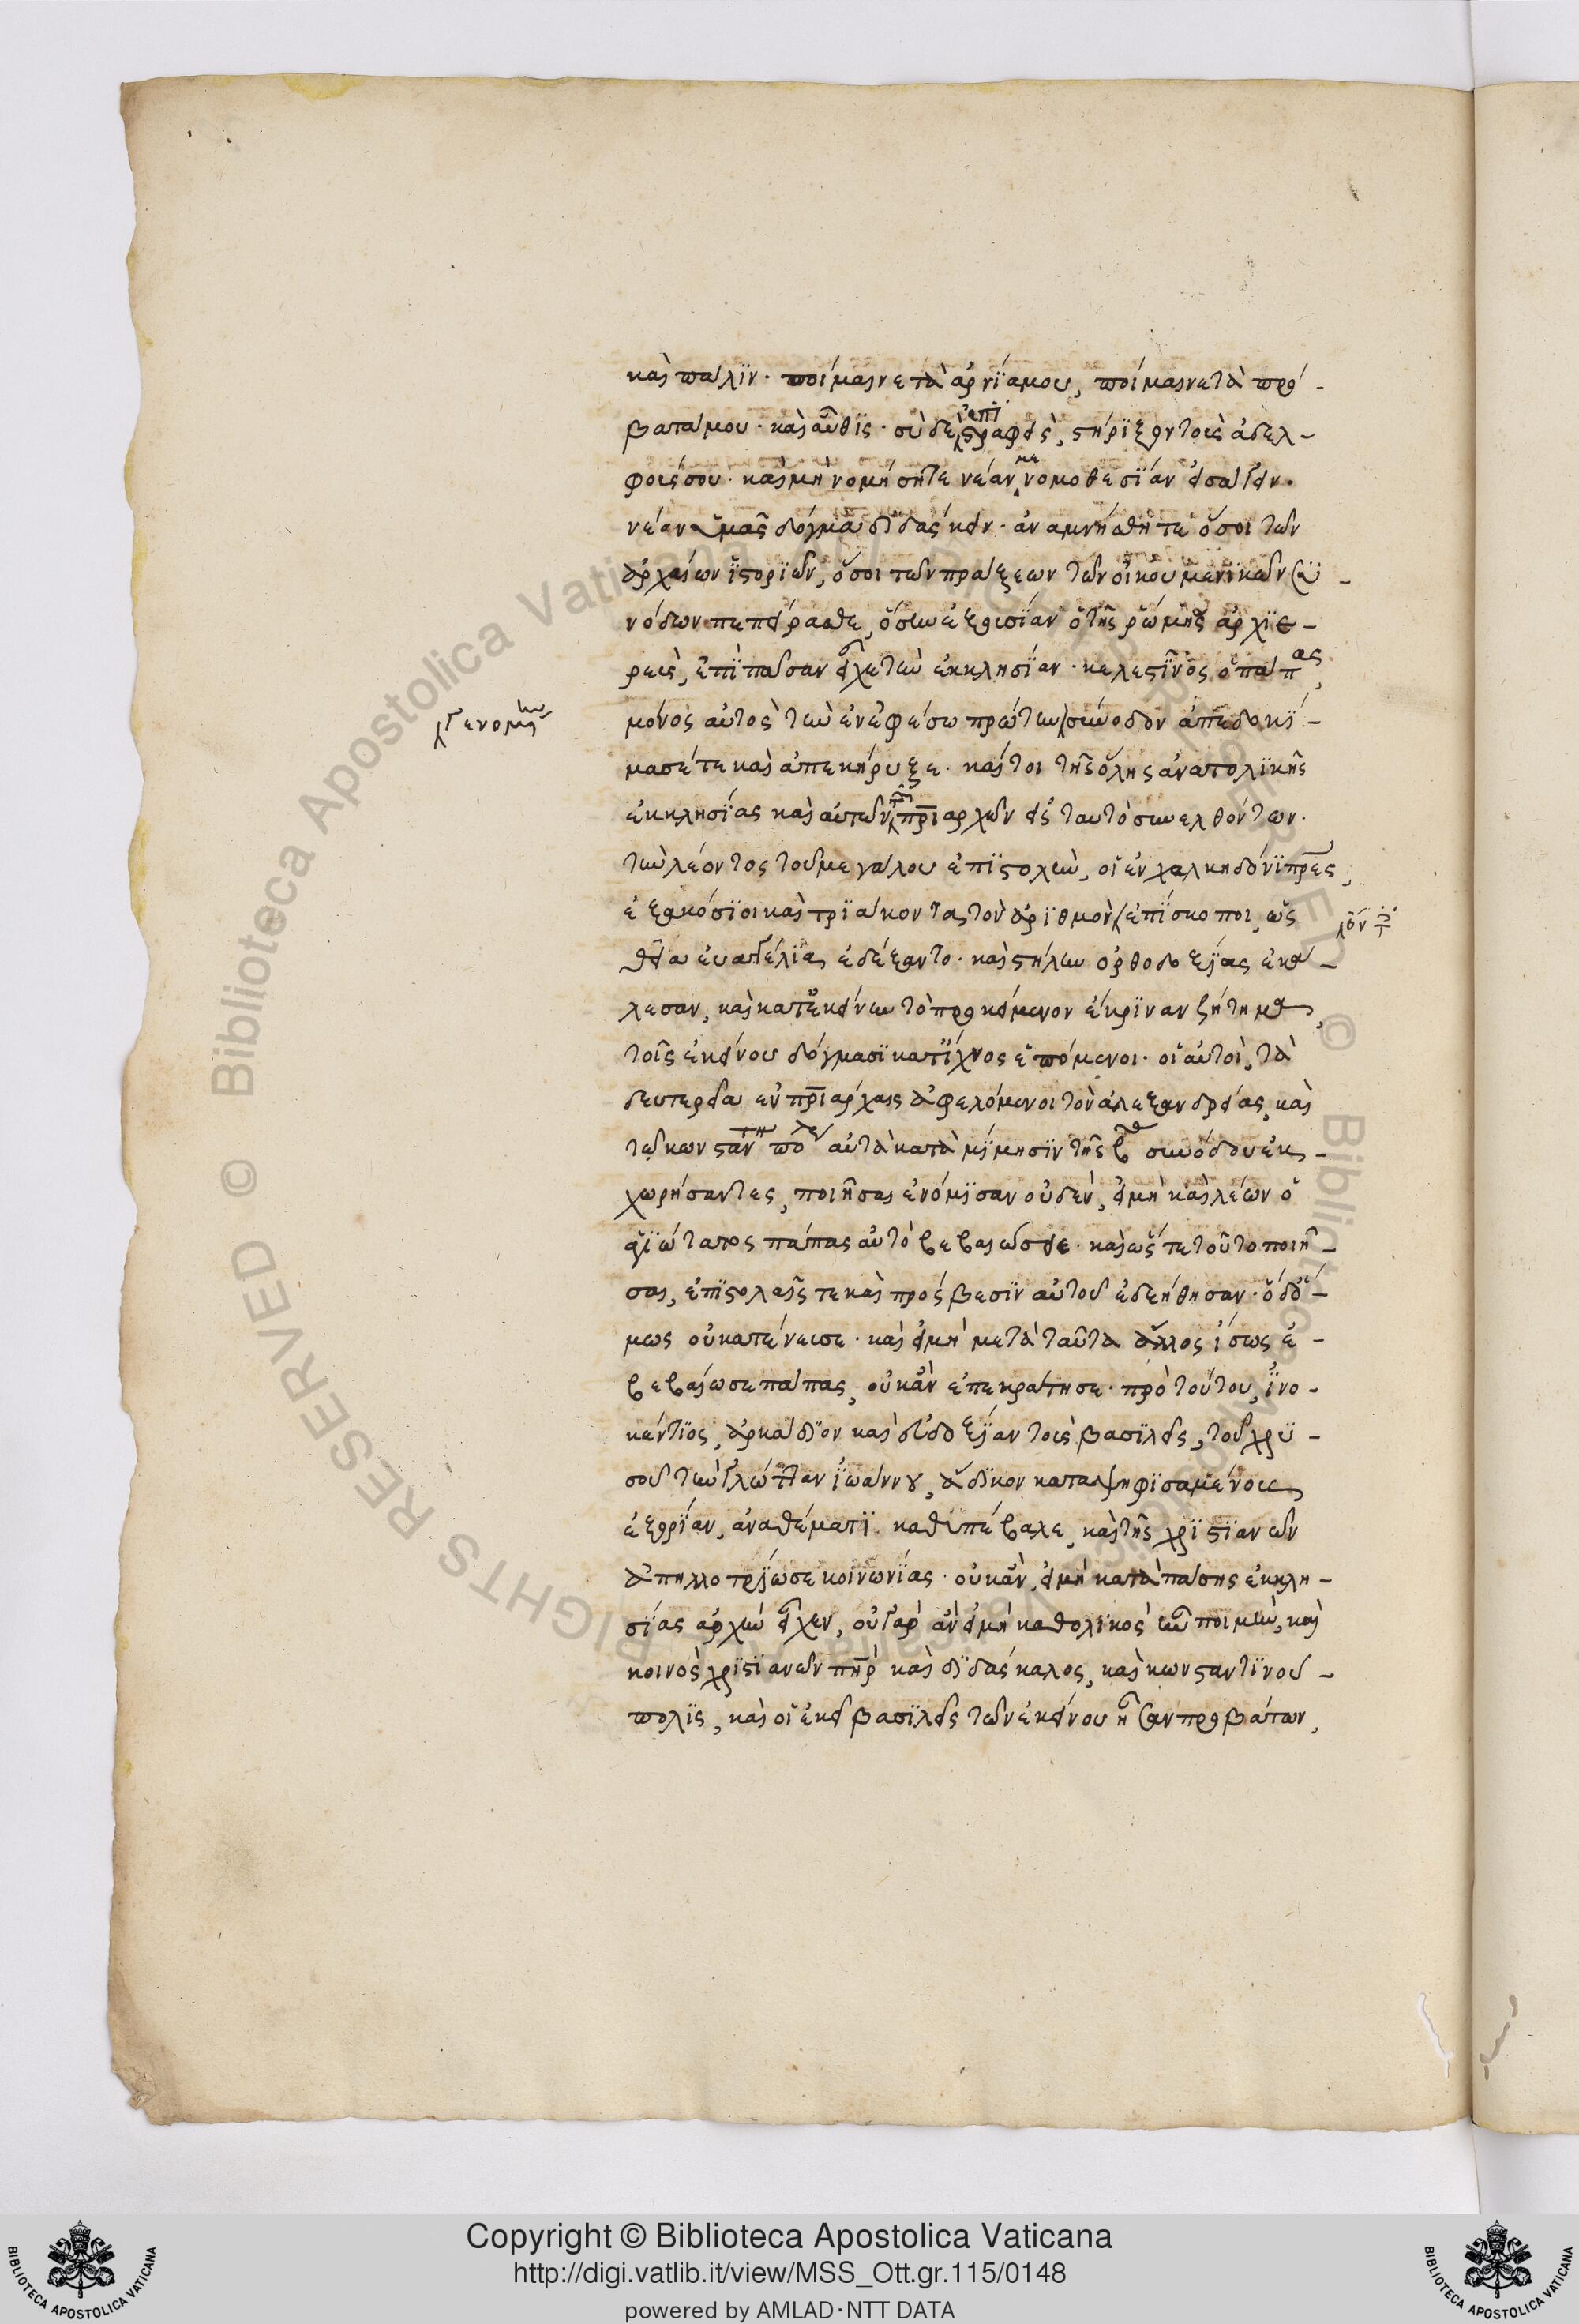 καὶ πάλϊν· ποίμαινε τὰ ἀρνΐα μου, ποίμαινε τὰ πρό-
βατά μου· καὶ αὖθϊς· σὺ δὲ ἐπιστραφεὶς, στήρϊξον τοὺς ἀδελ-
φούς σου· καὶ μὴ νομήσητε νέαν με νομοθεσΐαν εἰσάγειν·
νέαν ὑμᾶς δόγμα δϊδάσκειν· ἀναμνήσθητε ὅσοι τῶν
ἀρχαίων ἱστορϊῶν, ὅσοι τῶν πράξεων τῶν οἰκουμενικῶν συ-
νόδων πεπείρασθε, ὅσην ἐξουσΐαν ὁ τῆς ῥώμης ἀρχϊε-
ρεὺς, ἐπῒ πᾶσαν εἶχε τὴν ἐκκλησΐαν· κελεστῖνος ὁ πάπας,
μόνος αὐτὸς τὴν ἐν ἐφέσω πρώτην σύνοδον ἀπεδοκΐ-
γενομένην
μασέ τε καὶ ἀπεκήρυξε· καίτοι τῆς ὅλης ἀνατολϊκῆς
ἐκκλησΐας καὶ αὐτῶν πρϊαρχῶν εἰς ταυτὸ συνελθόντων·
τὴν λέοντος τοῦ μεγάλου ἐπϊστολὴν, οἱ ἐν χαλκηδόνϊ πρες,
ἑξακόσϊοι καὶ τρϊάκοντα τὸν ἀρϊθμὸν ἐπΐσκοποι, ὡς
θεῖα εὐαγγέλϊα ἐδέξαντο· καὶ στήλην ὀρθοδοξΐας ἐκά-
λεσαν, καὶ κατ' ἐκείνην τὸ προκείμενον ἔκρϊναν ζήτημα,
τοῖς ἐκείνου δόγμασϊ κατ' ἴχνος ἑπόμενοι· οἱ αὐτοὶ, τὰ
δευτερεῖα ἐν πρϊάρχαις ἀφελόμενοι τὸν ἀλεξανδρείας, καὶ
τῷ κωνσταν πο αὐτὰ κατὰ μΐμησϊν τῆς β συνόδου ἐκ-
χωρήσαντες, ποιῆσαι ἐνόμϊσαν οὐδὲν, εἰ μὴ καὶ λέων ὁ
ἁγϊώτατος πάπας αὐτὸ βεβαιώσειε· καὶ ὥστε τοῦτο ποιῆ-
σαι, ἐπϊστολαῖς τε καὶ πρέσβεσϊν αὐτοῦ ἐδεήθησαν· ὁ δ' ὅ-
μως οὐ κατένευσε· καὶ εἰ μὴ μετὰ ταῦτα ἄλλος ἴσως ἐ-
βεβαίωσε πάπας, οὐκ ἂν ἐπεκράτησε· πρὸ τούτου, ἰνο-
κέντϊος, ἀρκάδϊον καὶ εὐδοξΐαν τοὺς βασϊλεῖς, τοῦ χρυ-
σοῦ τὴν γλῶτταν ἰωάννου, ἄδϊκον καταψηφϊσαμένους
ἐξορΐαν, ἀναθέματϊ καθϋπέβαλε, καὶ τῆς χρϊστϊανῶν
ἀπηλλοτρΐωσε κοινωνΐας· οὐκ ἂν, εἰ μὴ κατὰ πάσης ἐκκλη-
σΐας ἀρχὴν εἶχεν, οὐ γὰρ ἂν εἰ μὴ καθολϊκὸς ἦν ποιμὴν, καὶ
κοινὸς χρϊστϊανῶν πηρ καὶ δϊδάσκαλος, καὶ κωνσταντϊνού-
πολϊς, καὶ οἱ ἐκεῖ βασϊλεῖς τῶν ἐκείνου ἦσαν προβάτων,
Copyright © Biblioteca Apostolica Vaticana
http://digi.vatlib.it/view/MSS_Ott.gr.115/0148
powered by AMLAD·NTT DATA